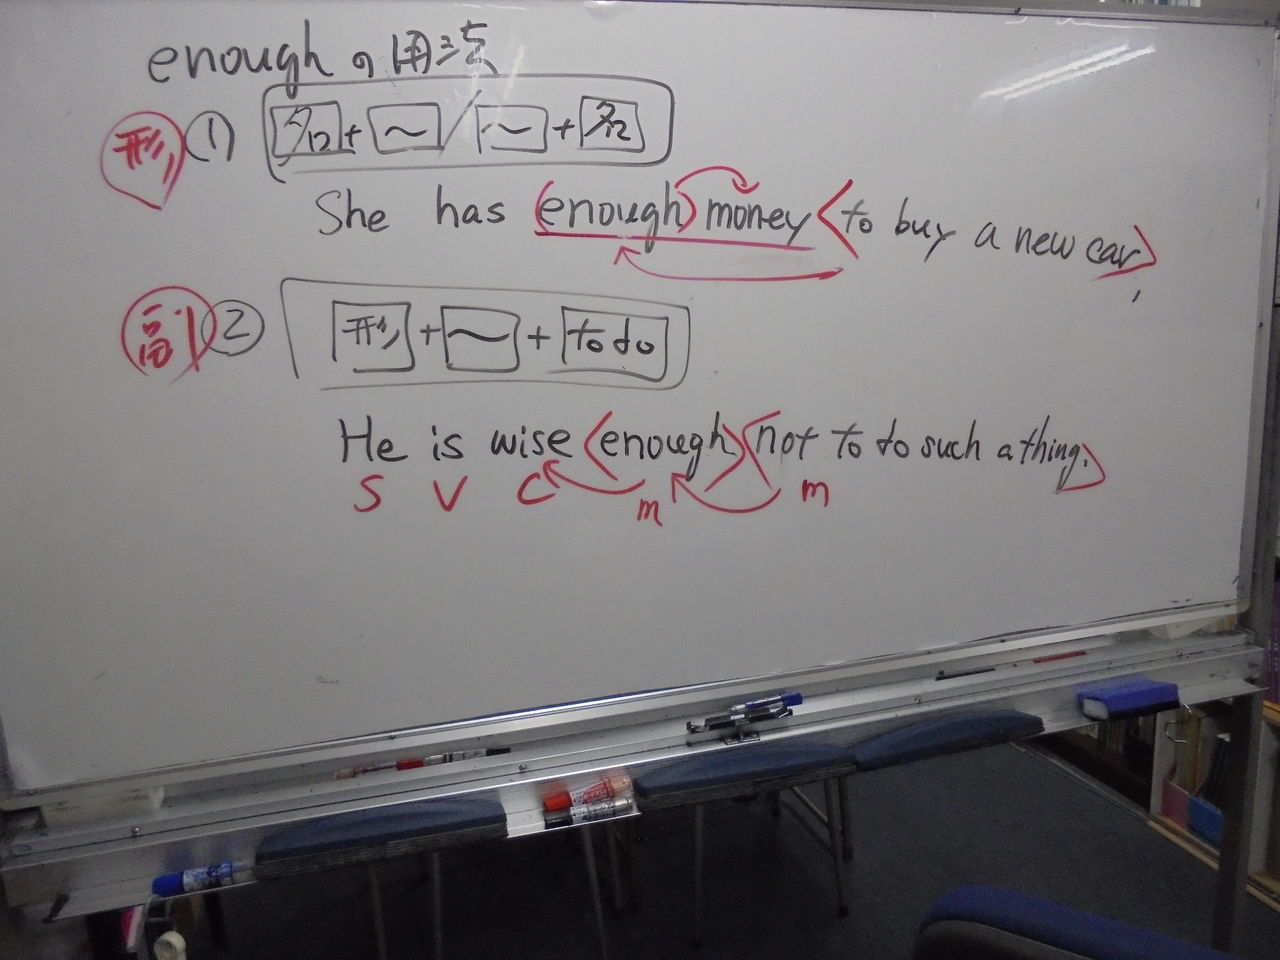 enoughの用法
形 ① 名 + ～ / ～ + 名
She has (enough) money <to buy a new car>.
副 ② 形 + ～ + to do
He is wise <enough> <not to do such a thing.>
S V C m m